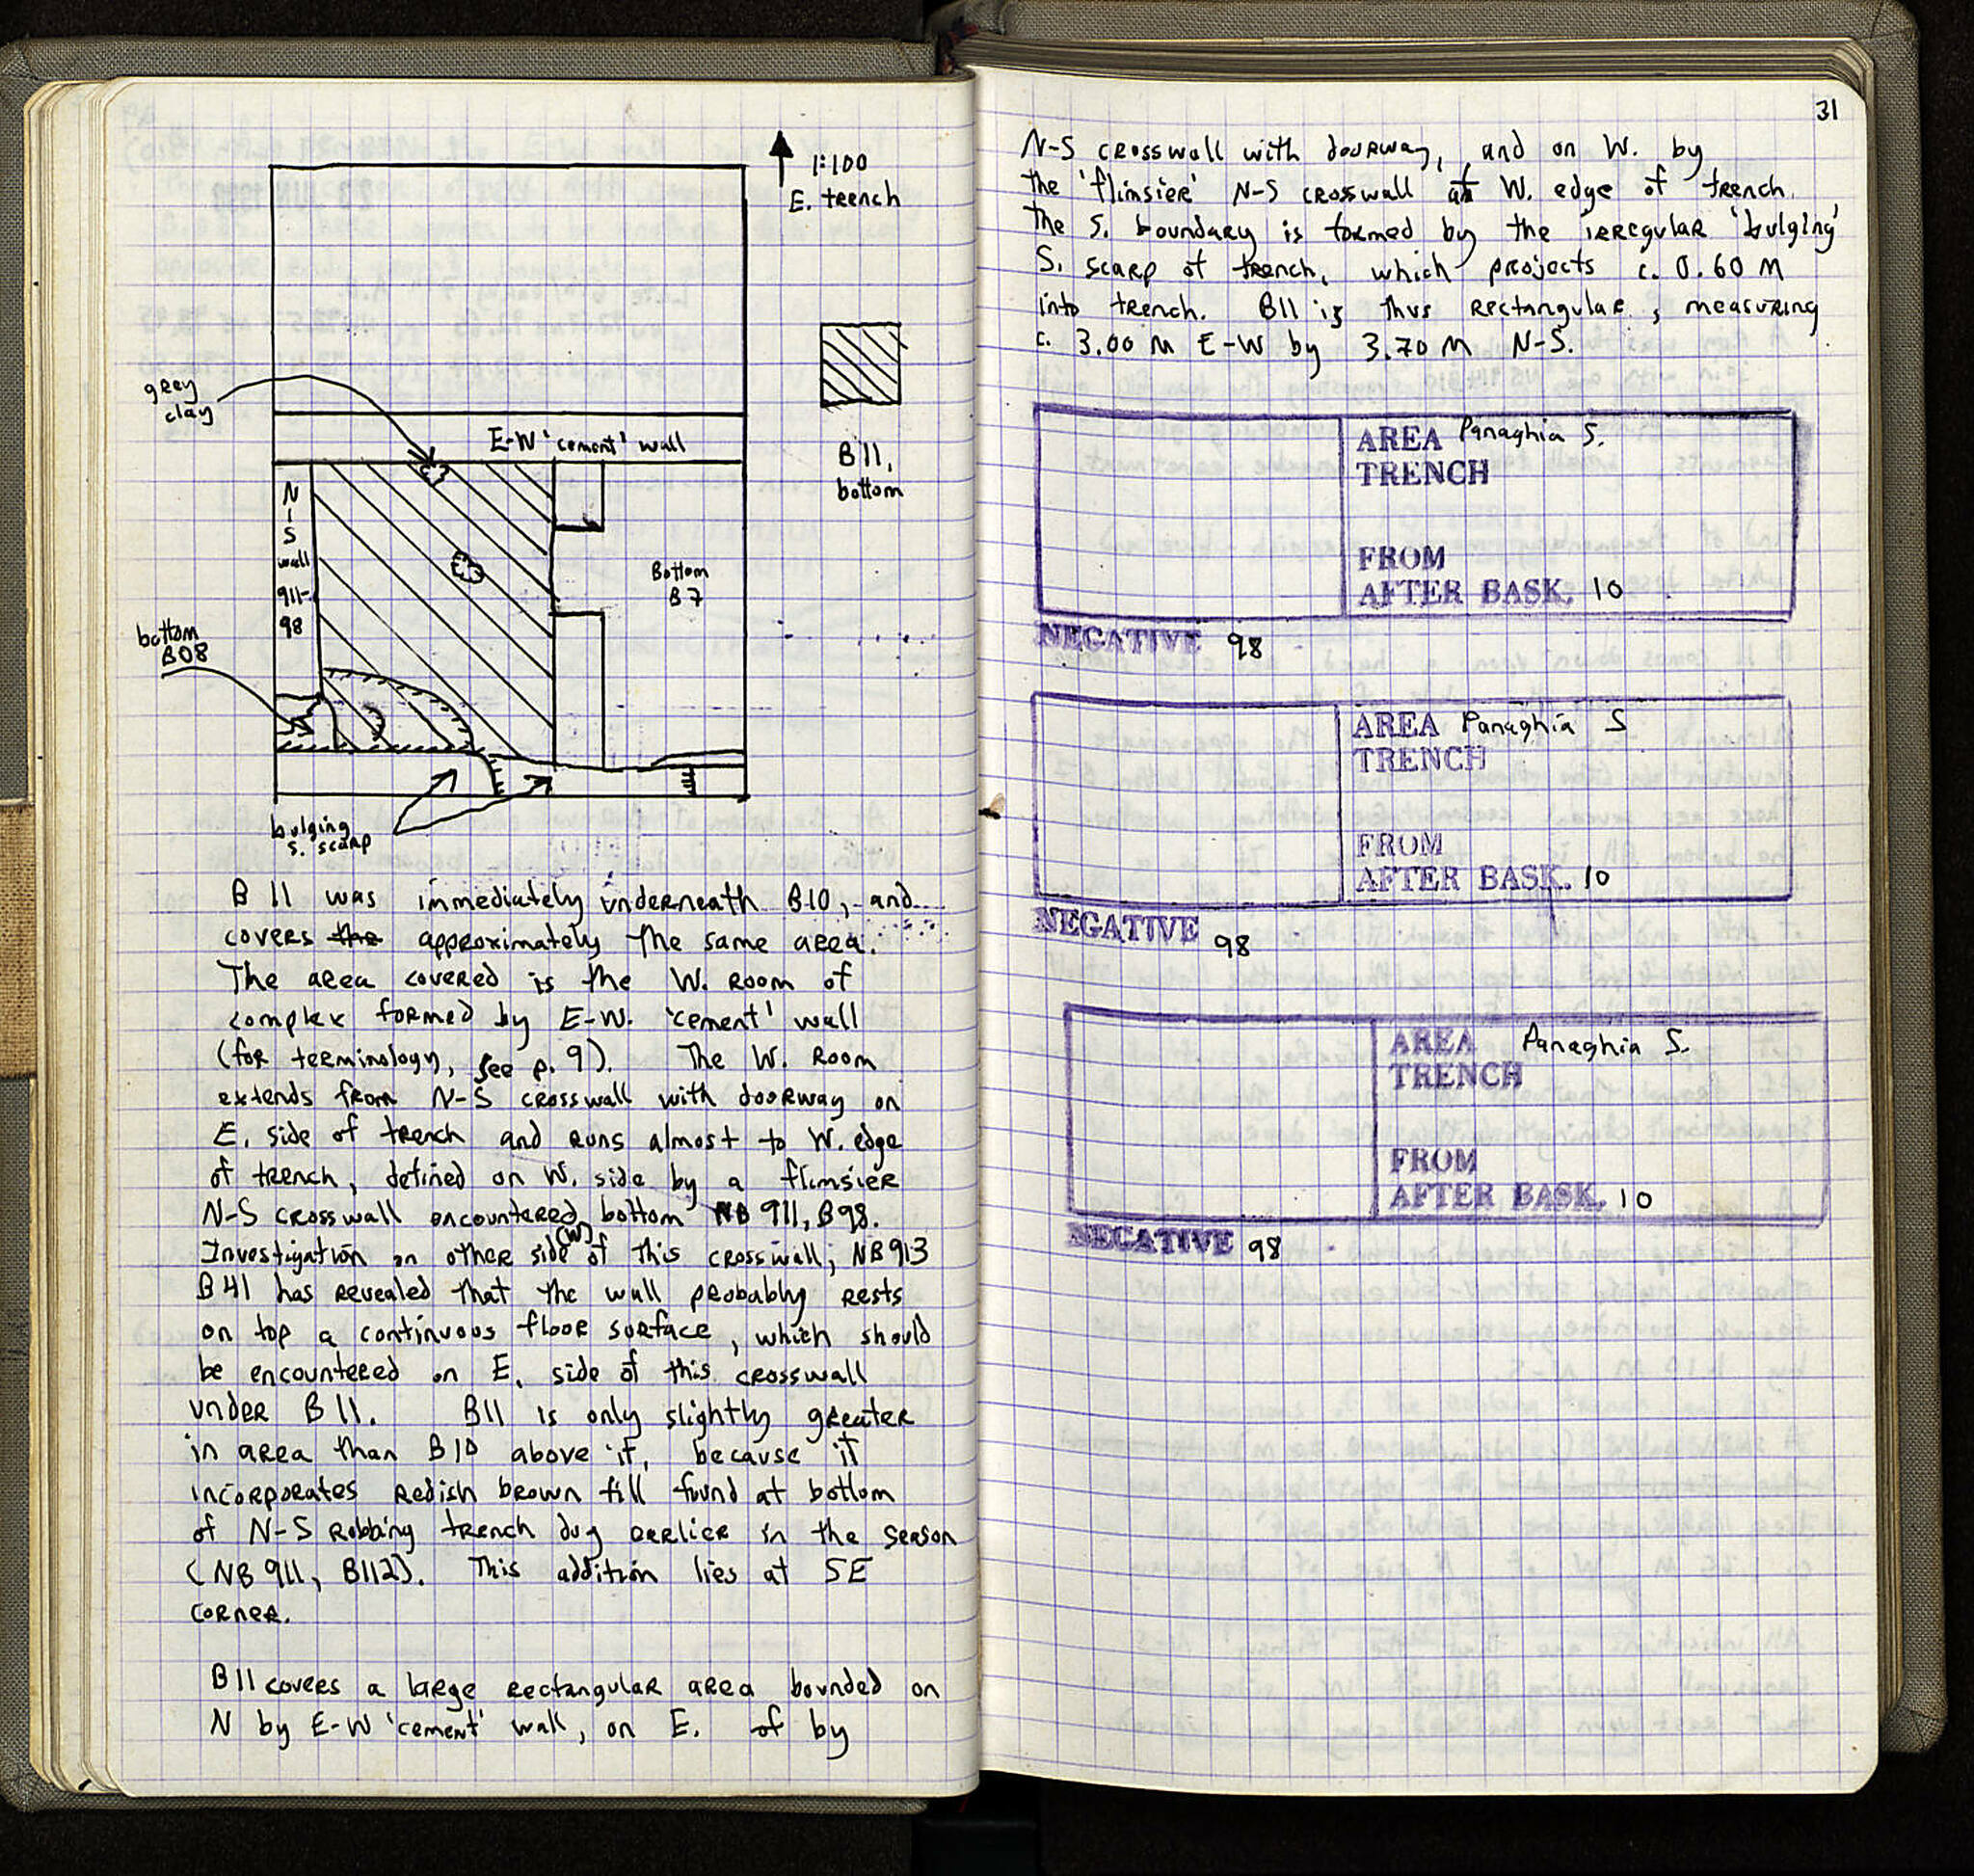 1:100
E. trench
grey
clay
E-W 'cement' wall
B11,
bottom
N
-
S
wall
911-
98
Bottom
B7
bottom
B08
bulging
S. scarp
B 11 was immediately underneath B10, and
covers the approximately the same area.
The area covered is the W. Room of
complex formed by E-W. 'cement' wall
(for terminology, see p. 9). The W. Room
extends from N-S crosswall with doorway on
E. side of trench and runs almost to W. edge
of trench, defined on W. side by a flimsier
N-S crosswall encountered bottom NB 911, B98.
Investigation on other side (W) of this crosswall, NB913
B41 has revealed that the wall probably rests
on top a continuous floor surface, which should
be encountered on E. side of this crosswall
under B11. B11 is only slightly greater
in area than B10 above it, because it
incorporates redish brown fill found at bottom
of N-S Robbing trench dug earlier in the season
(NB 911, B112). This addition lies at SE
corner.
B11 covers a large rectangular area bounded on
N by E-W 'cement' wall, on E. of by
31
N-S crosswall with doorway, and on W. by
the 'flimsier' N-S crosswall at W. edge of trench.
The S. boundary is formed by the irregular 'bulging'
S. scarp of trench, which projects c. 0.60 M
into trench. B11 is thus rectangular, measuring
c. 3.00 M E-W by 3.70 M N-S.
AREA Panaghia S.
TRENCH
FROM
AFTER BASK. 10
NEGATIVE 98
AREA Panaghia S
TRENCH
FROM
AFTER BASK. 10
NEGATIVE 98
AREA Panaghia S.
TRENCH
FROM
AFTER BASK. 10
NEGATIVE 98